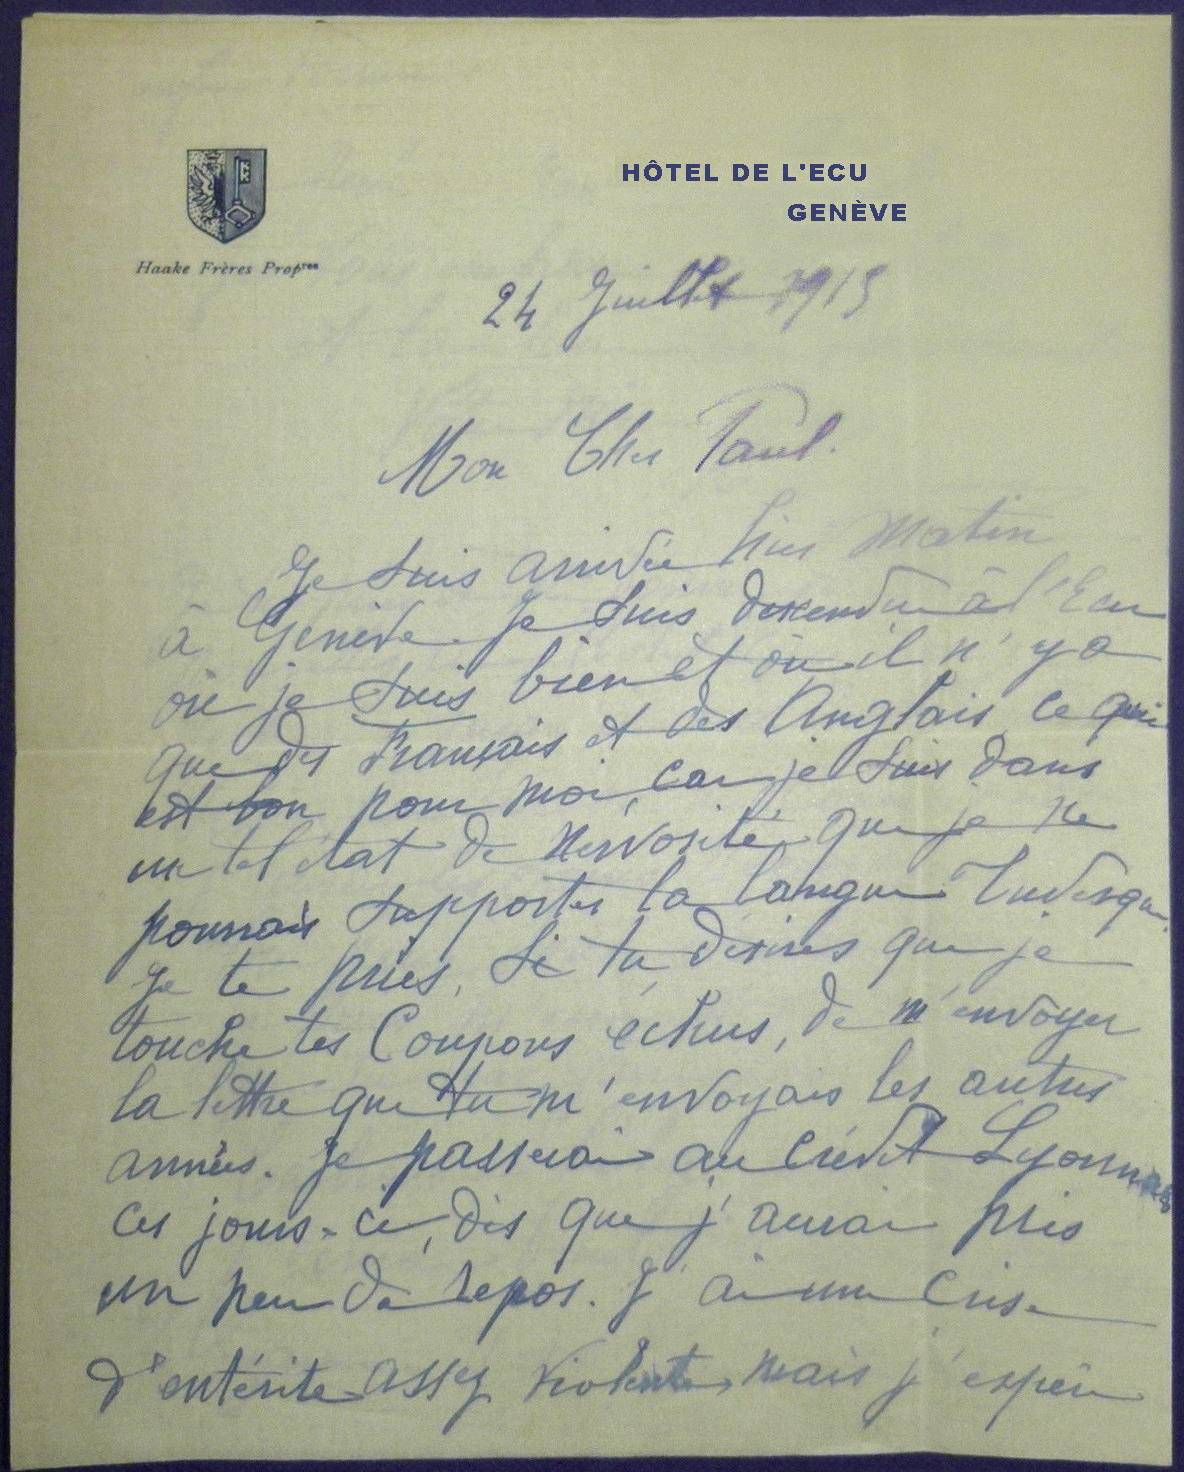 HÔTEL DE L'ECU
GENÈVE
Haake Frères Propres
24 Juillet 1915
Mon Cher Paul.
Je suis arrivée hier matin
à Genève. Je suis descendue à l'Ecu
où je suis bien et où il n'y a
que des Français et des Anglais ce qui
est bon pour moi, car je suis dans
un tel état de nervosité que je ne
pourrais supporter la langue Tudesque.
Je te prie, si tu désires que je
touche tes Coupons échus, de m'envoyer
la lettre que tu m'envoyais les autres
années. Je passerai au Crédit Lyonnais
ces jours-ci, dès que j'aurai pris
un peu de repos. J'ai une crise
d'entérite assez violente, mais j'espère